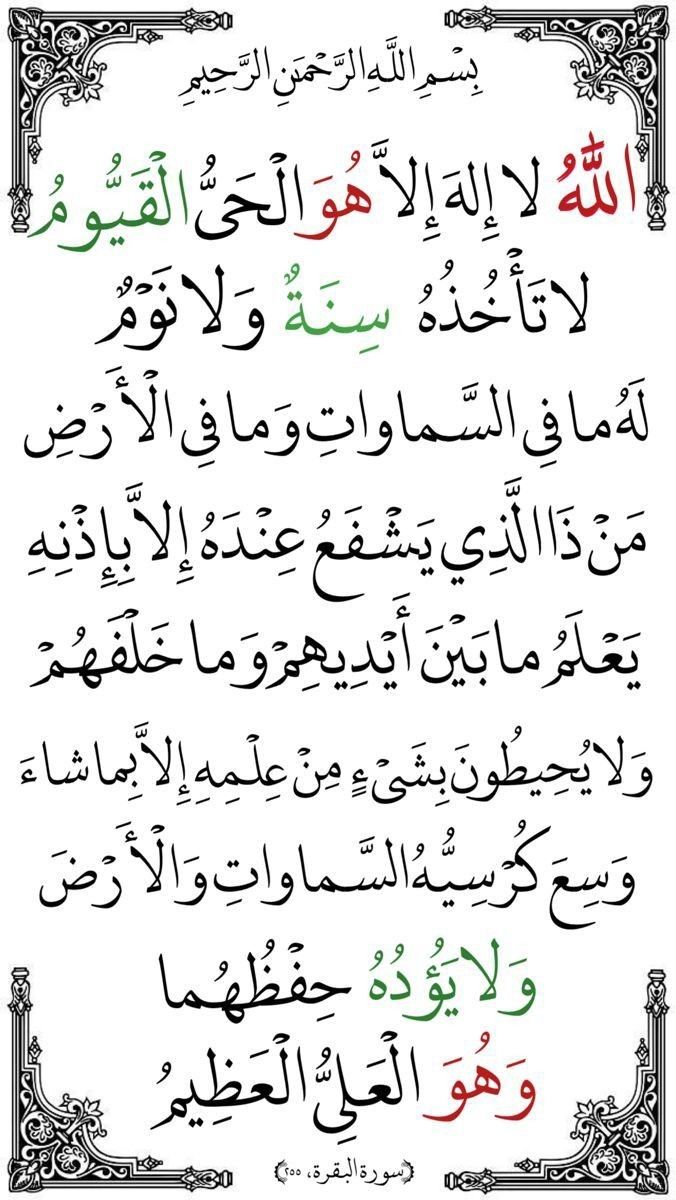 بِسْمِ اللَّهِ الرَّحْمَنِ الرَّحِيمِ
اللَّهُ لا إِلهَ إِلاَّ هُوَ الْحَيُّ الْقَيُّومُ
لا تَأْخُذُهُ سِنَةٌ وَلا نَوْمٌ
لَهُ ما فِي السَّماواتِ وَما فِي الْأَرْضِ
مَنْ ذَا الَّذِي يَشْفَعُ عِنْدَهُ إِلاَّ بِإِذْنِهِ
يَعْلَمُ ما بَيْنَ أَيْدِيهِمْ وَما خَلْفَهُمْ
وَلا يُحِيطُونَ بِشَيْءٍ مِنْ عِلْمِهِ إِلاَّ بِما شاءَ
وَسِعَ كُرْسِيُّهُ السَّماواتِ وَالْأَرْضَ
وَلا يَؤُدُهُ حِفْظُهُما
وَهُوَ الْعَلِيُّ الْعَظِيمُ
﴿سورة البقرة، ٢٥٥﴾